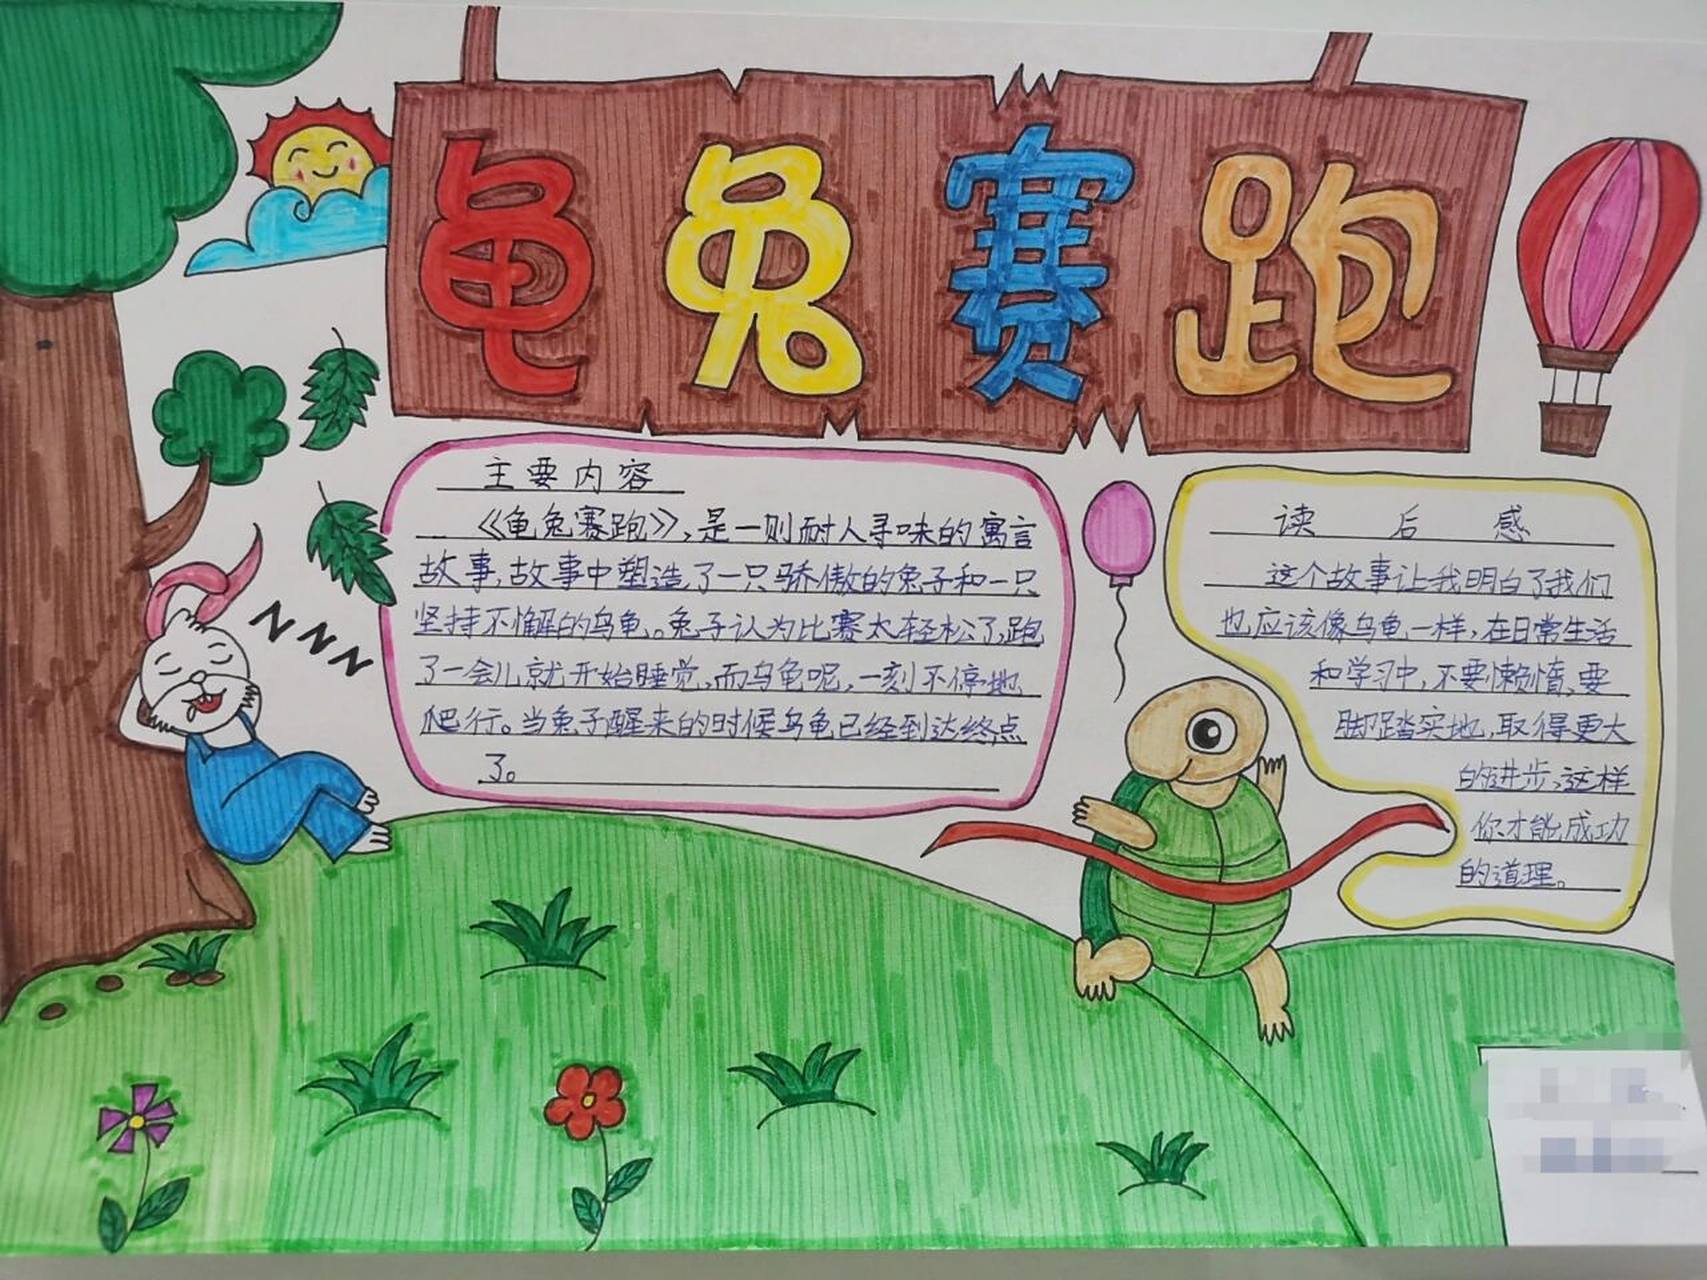 龟兔赛跑
主要内容
《龟兔赛跑》,是一则耐人寻味的寓言
故事,故事中塑造了一只骄傲的兔子和一只
坚持不懈的乌龟。兔子认为比赛太轻松了,跑
了一会儿就开始睡觉,而乌龟呢,一刻不停地
爬行。当兔子醒来的时候乌龟已经到达终点
了。
读后感
这个故事让我明白了我们
也应该像乌龟一样,在日常生活
和学习中,不要懒惰,要
脚踏实地,取得更大
的进步,这样
你才能成功
的道理。
NNN